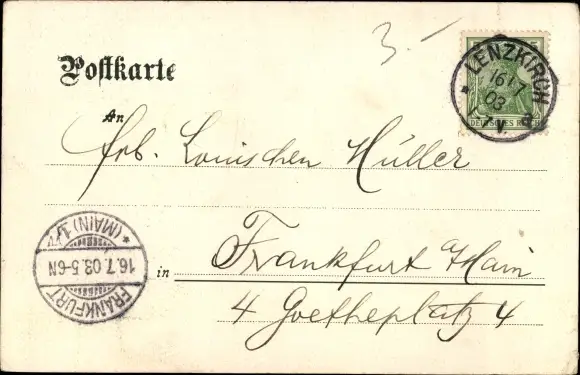 3.-
Postkarte
LENZKIRCH
16 7
03
1 V.
DEUTSCHES REICH
An
Frl. Louischen Müller
in Frankfurt a/Main
4 Goetheplatz 4
FRANKFURT
16.7.03.5-6N
* (MAIN) 1 *